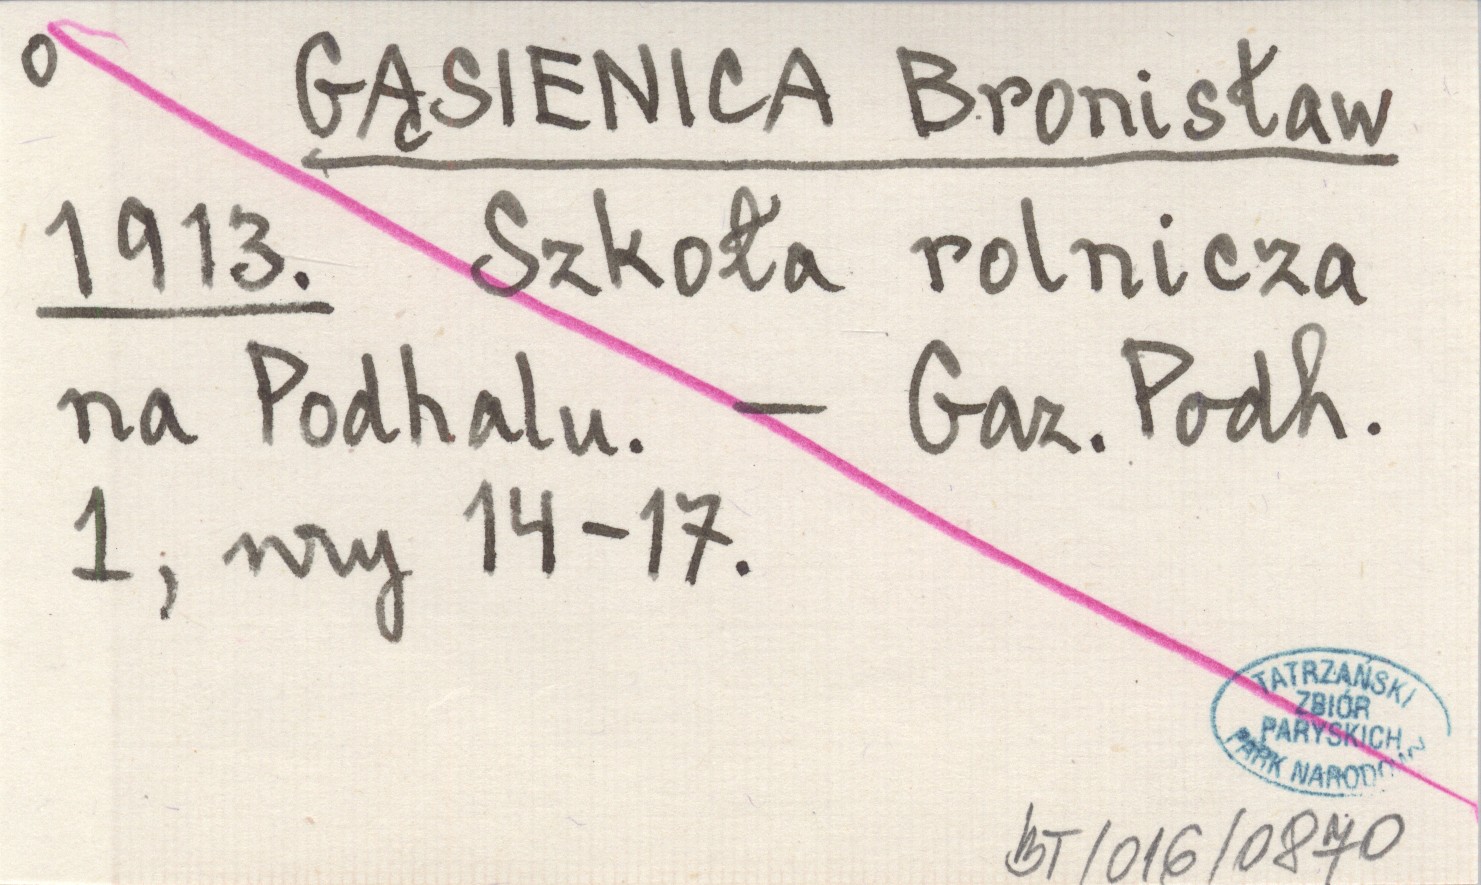 o GĄSIENICA Bronisław
1913. Szkoła rolnicza
na Podhalu. — Gaz. Podh.
1, nry 14-17.
TATRZAŃSKI
ZBIÓR
PARYSKICH
PARK NARODOWY
BT/016/0870